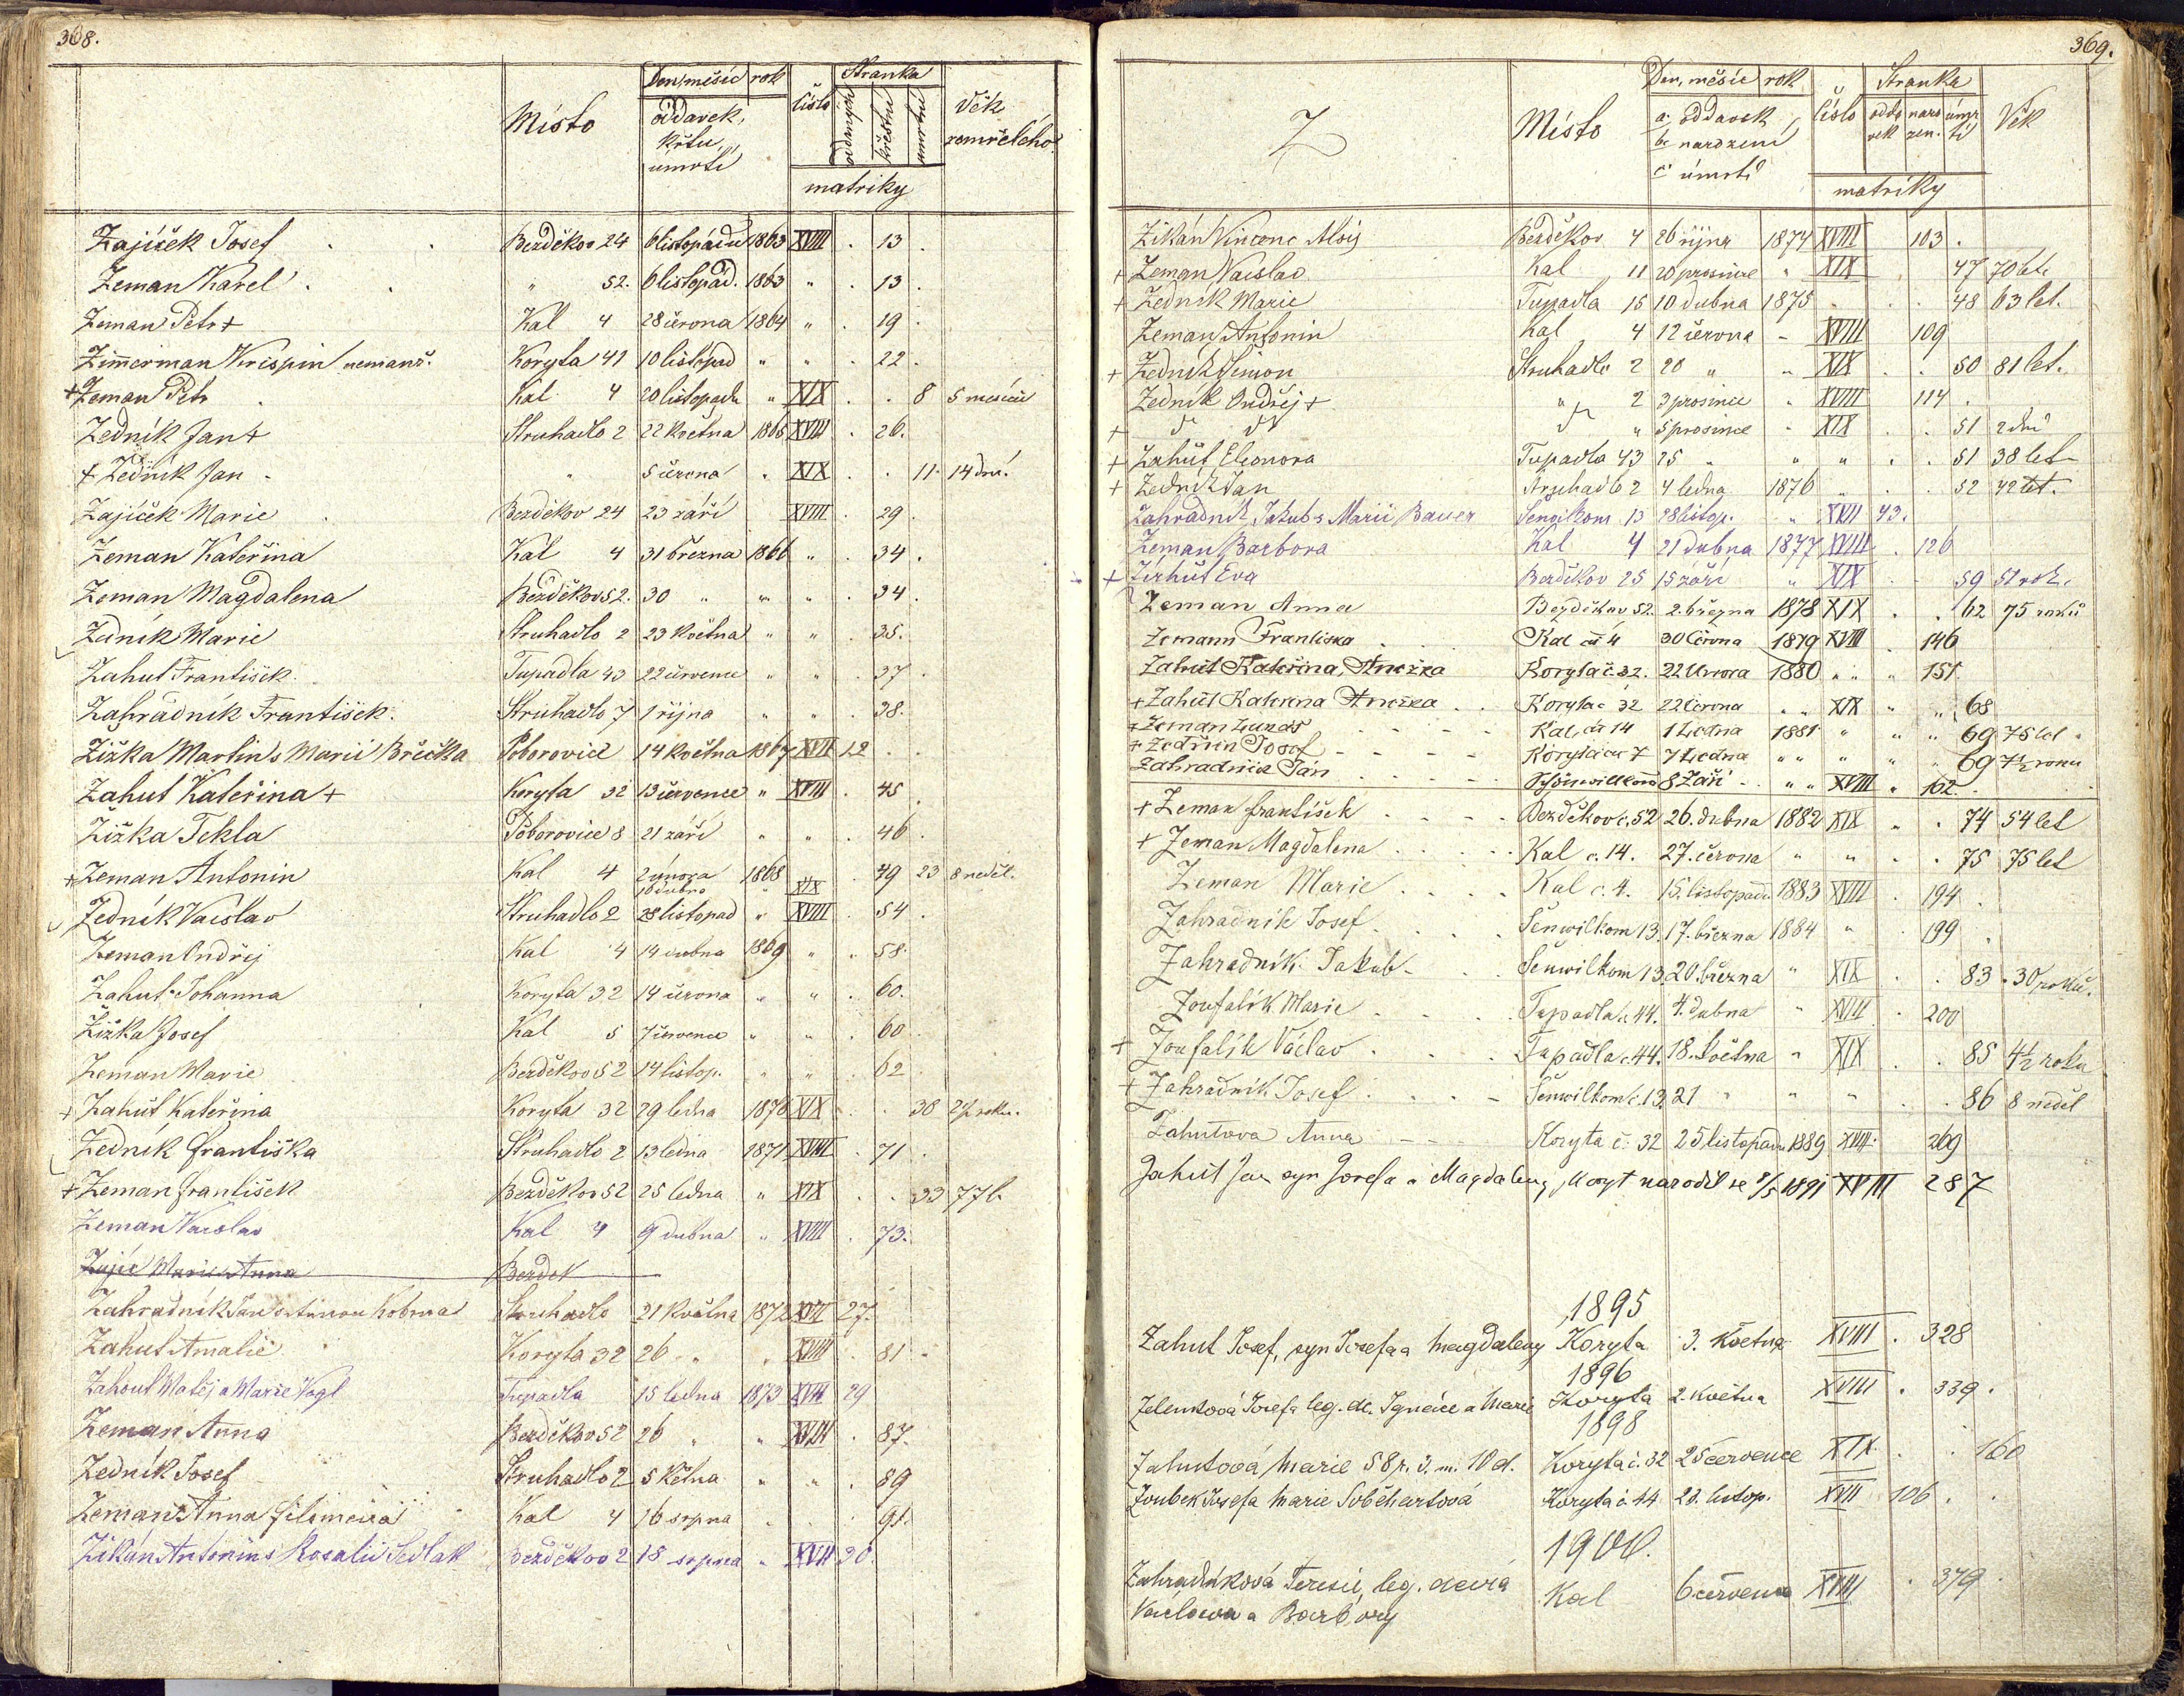 368.
Místo
Den, měsíc rok
oddavek,
křtu,
úmrtí
číslo
Stránka
oddaných
křestní
úmrtní
matriky
Věk
zemřelého
Zajíček Josef . . Bezděkov 24 6 listopadu 1863 XVIII . 13 .
Zeman Karel . . " 52. 6 listopad. 1863 " . 13 .
Zeman Petr + Kal 4 28 června 1864 " . 19 .
Zimerman Krispin nemanž. Koryta 41 10 listopad " " . 22 .
+ Zeman Petr . Kal 4 20 listopadu " XIX . . 8 5 měsíců
Zedník Jan + Struhadlo 2 22 května 1865 XVIII . 26.
+ Zedník Jan . " 5 června . XIX . . 11. 14 dní.
Zajíček Marie . Bezděkov 24 23 září XVIII . 29 .
Zeman Kateřina Kal 4 31 března 1866 " . 34 .
Zeman Magdalena Bezděkov 52. 30 " " " . 34 .
Zdník Marie Struhadlo 2 23 května " " . 35.
Zahut František Tupadla 43 22 července " " . 37 .
Zahradník František. Struhadlo 7 1 října " " . 38.
Zižka Martin s Marií Brčička Poborovice 14 května 1867 XVII 12 . .
Zahut Kateřina + Koryta 32 13 července " XVIII . 45 .
Zižka Tekla Poborovice 8 21 září " " . 46 .
+ Zeman Antonin Kal 4 2 února 1868 . 49 23 8 neděl.
16 dubna " XIX
Zedník Václav Struhadlo 2 28 listopad " XVIII . 54 .
Zeman Ondřej Kal 4 14 dubna 1869 " . 58.
Zahut Johanna Koryta 32 14 června " " . 60.
Žižka Josef Kal 5 7 července " " . 60 .
Zeman Marie Bezděkov 52 14 listop. " " . 62 .
+ Zahut Kateřina Koryta 32 29 ledna 1870 XIX . . 30 2½ roku.
Zedník Františka Struhadlo 2 13 ledna 1871 XVIII . 71 .
+ Zeman František Bezděkov 52 25 ledna " XIX . . 33 77 l.
Zeman Václav Kal 4 9 dubna " XVIII . 73.
Zajíc Marie Anna Bezdek
Zahradník Jan s Annou Struhadlo 21 května 1872 XVII 27.
Zahut Amalie Koryta 32 26 " " XVIII . 81 .
Zahout Matěj a Marie Vogl Tupadla 15 ledna 1873 XVII 29
Zeman Anna Bezděkov 52 26 " " XVIII . 87.
Zedník Josef Struhadlo 2 5 května " " . 89
Zeman Anna Filomena Kal 4 16 srpna . . . 91.
Zikán Antonin s Rosalií Sedlak Bezděkov 2 18 srpna " XVII 30.
369.
Z
Místo
Den, měsíc rok
a. oddavek
b. narození
c. úmrtí
číslo
Stránka
odda vek
naro zen.
úmr tí
matriky
Věk
Zikán Vincenc Alois Bezděkov 4 26 října 1874 XVIII 103 .
+ Zeman Václav Kal 11 20 prosince " XIX . 47 70 let.
+ Zedník Marie Tupadla 15 10 dubna 1875 . . . 48 63 let.
Zeman Antonin Kal 4 12 června - XVIII 109
+ Zedník Simon Struhadlo 2 20 " " XIX . . 50 81 let.
Zedník Ondřej + " 2 3 prosince " XVIII 114 .
+ " 5 prosince " XIX . . 51 2 dní
+ Zahut Eleonora Tupadla 43 25 " " " . . 51 38 let
+ Zedník Jan Struhadlo 2 4 ledna 1876 " . . 52 42 let.
Zahradník Jakub s Marií Bauer Šenvilkom 13 28 listop. " XVII 43.
Zeman Barbora Kal 4 21 dubna 1877 XVIII . 126
+ Zirhut Eva Bezděkov 25 15 září " XIX . - 59 51 rok.
Zeman Anna Bezděkov 52. 2. března 1878 XIX . . 62 75 roků
Zemann Frantiska . . Kal čís 4 30 Června 1879 XVIII . 146
Zahut Kateřina, Anežka Koryta č. 32. 22 Února 1880 " " " 151
+ Zahut Kateřina Anežka . . Koryta č 32 22 Června " " XIX " " 68
+ Zeman Lukas - - - Kal, čís 14 1 Ledna 1881 " " " 69 75 let "
+ Zedník Josef - - - - Koryta čís 7 7 Ledna " " " " " 69 7½ roku
Zahradník Jan - - - - Schönwillkom 8 Září - " " XVIII " 162 .
+ Zeman František . . . . Bezděkov č. 52 26. dubna 1882 XIX " . 74 54 let
+ Zeman Magdalena . . . . . Kal č. 14. 27. června " " . . 75 75 let
Zeman Marie . . . . Kal č. 4. 15. listopadu 1883 XVIII . 194 .
Zahradník Josef . . . . Šenwilkom 13. 17. března 1884 " . 199 .
Zahradník Jakub - . . Šenwilkom 13. 20. března " XIX . . 83 . 30 roků.
Zoufalík Marie . . . . Tupadla č. 44. 4. dubna " XVIII . 200
+ Zoufalík Václav . . . Tupadla č. 44. 18. května " XIX . . 85 4½ roku
+ Zahradník Josef . . . . Šenwilkom č. 13. 21 " " " . . 86 8 neděl
Zahutova Anna - - - Koryta č. 32 25 listopadu 1889 XVIII. 269
Zahut Jan syn Josefa a Magdaleny, Koryt narodil se 8/5 1891 XVIII 287
1895
Zahut Josef, syn Josefa a Magdaleny Koryta 3. května XVIII . 328
1896
Zelenková Josefa leg. dc. Ignáce a Marie Koryta 2. května XVIII . 339 .
1898
Zahutová Marie 58 r. 3. m. 10 d. Koryta č. 32 25 července XIX . . 160
Zoubek Josefa Marie Koryta č. 44 23. listop. XVII 106 . .
1900.
Zahradníková Teresie, leg. dcera Kal 6 července XVIII . 379 .
Václava a Barbory